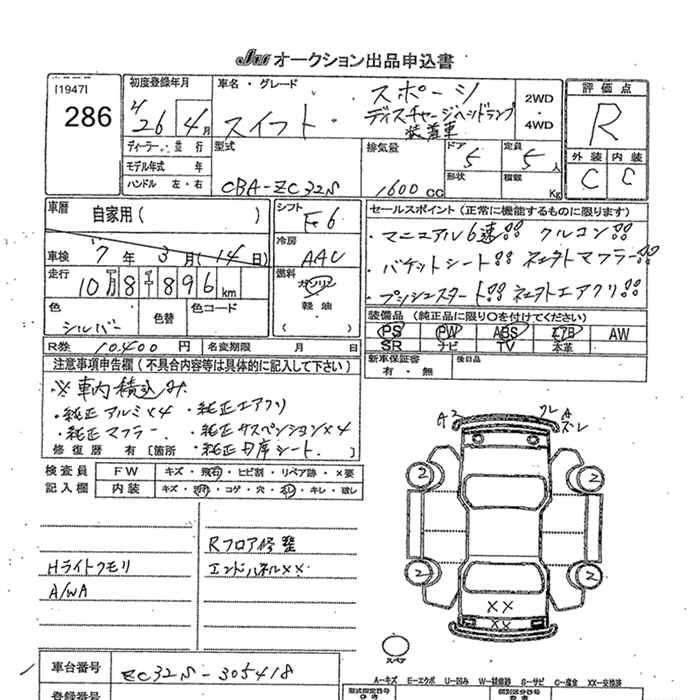 JU オークション出品申込書
[1947]
286
初度登録年月
H26 4月
車名・グレード
スイフト・スポーツ
ディスチャージヘッドランプ
装着車
2WD
・
4WD
評価点
R
外装 内装
C C
ディーラー・並行
モデル年式 年
ハンドル 左・右
型式
CBA-ZC32S
排気量
1600cc
ドア 5
形状
定員 5人
積載 Kg
車暦
自家用( )
車検 7年3月(14日)
走行
10万8千896km
色
シルバー
色替
色コード
シフト
F6
冷房
AAC
燃料
ガソリン
軽油
( )
セールスポイント(正常に機能するものに限ります)
・マニュアル6速!! クルコン!!
・バケットシート!! 社外マフラー!!
・プッシュスタート!! 社外エアクリ!!
装備品(純正品に限り○を付けてください)
PS PW ABS エアB AW
SR ナビ TV 本革
新車保証書
有・無
後日品
R券 10,400円 名変期限 月 日
注意事項申告欄(不具合内容等は具体的に記入して下さい)
※車内積込み
・純正アルミ×4 ・純正エアクリ
・純正マフラー ・純正サスペンション×4
修復歴 有 [箇所 ・純正シート
検査員 FW キズ・飛石・ヒビ割・リペア跡・×要
記入欄 内装 キズ・汚れ・コゲ・穴・スレ・キレ・欠し
Rフロア修整
Hライトクモリ エンドパネル××
A/WA
A2 クレ A
ズレ
2 2
2 2
××
××
スペア
A-キズ E-エクボ U-凹み W-補修跡 S-サビ C-腐食 XX-交換済
車台番号 ZC32S-305418
登録番号
型式指定番号
類別区分番号